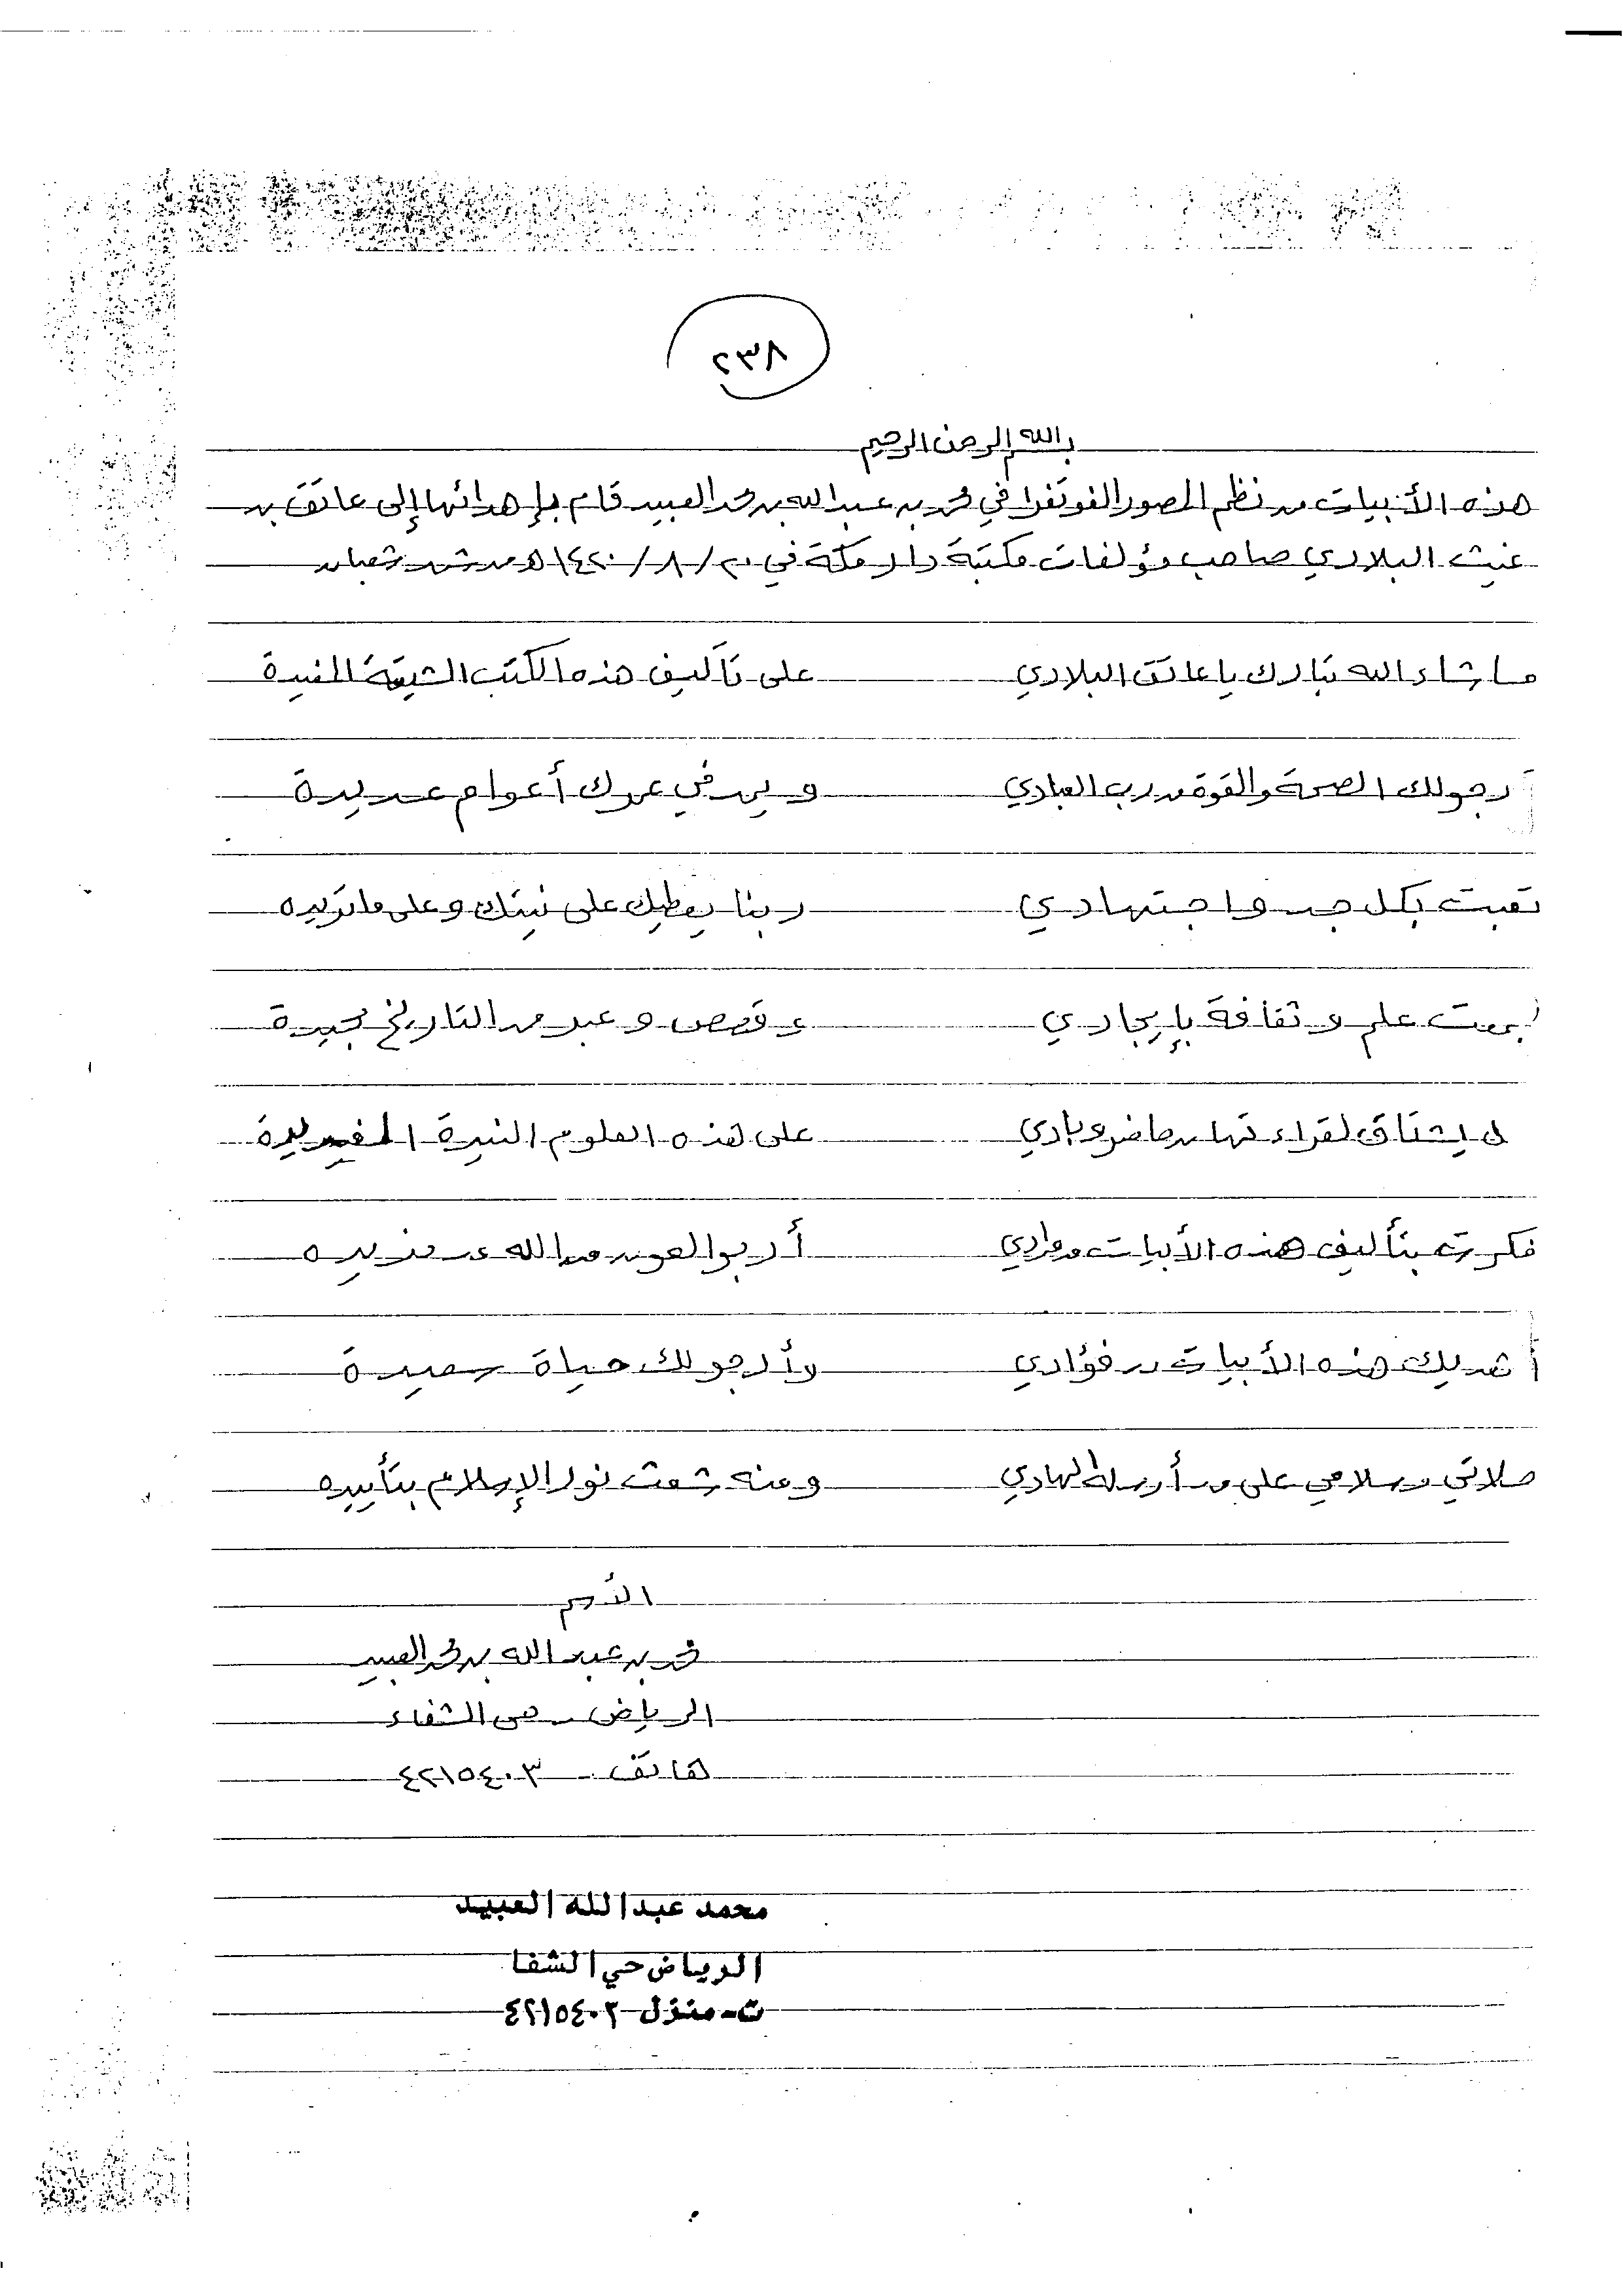 ٢٣٨
بسم الله الرحمن الرحيم
هذه الأبيات من نظم المصور الفوتغرافي محمد بن عبدالله بن محمد العبيد قام بإهدائها إلى عاتق بن
غيث البلادي صاحب مؤلفات مكتبة دار مكة في ٢٠/٨/١٤٢٠ه من شهر شعبان
ما شاء الله تبارك يا عاتق البلادي على تأليف هذه الكتب الشيقة المفيدة
أرجو لك الصحة والقوة من رب العبادي ويمد في عمرك أعوام عديدة
تعبت بكل جد واجتهادي ربنا يعطيك على نيتك وعلى ما تريده
جمعت علم وثقافة بإيجادي وقصص وعبر من التاريخ مجيدة
يشتاق لقراءتها من حاضر وبادي على هذه العلوم النيرة الفريدة
فكرت بتأليف هذه الأبيات مرادي أرجوا العون من الله من مزيده
أهديك هذه الأبيات من فؤادي وأرجو لك حياة سعيدة
صلاتي وسلامي على من أرسله الهادي ومنه شعت نور الإسلام بتأييده
الأسم
محمد بن عبدالله بن محمد العبيد
الرياض - حي الشفاء
هاتف - ٤٢١٥٤٠٣
محمد عبدالله العبيد
الرياض حي الشفا
ت - منزل ٤٢١٥٤٠٣